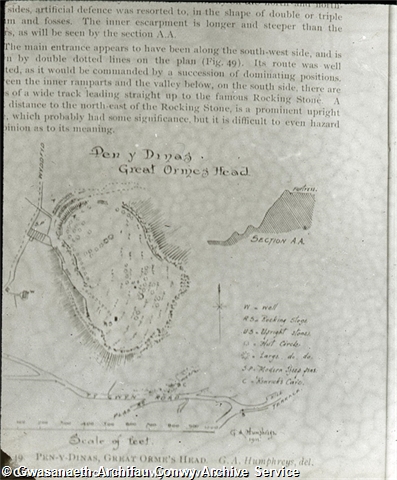 sides, artificial defence was resorted to, in the shape of double or triple
and fosses. The inner escarpment is longer and steeper than the
as will be seen by the section A.A.
The main entrance appears to have been along the south-west side, and is
by double dotted lines on the plan (Fig. 49). Its route was well
as it would be commanded by a succession of dominating positions.
the inner ramparts and the valley below, on the south side, there are
of a wide track leading straight up to the famous Rocking Stone. A
distance to the north-east of the Rocking Stone, is a prominent upright
which probably had some significance, but it is difficult to even hazard
as to its meaning.
Pen y Dinas.
Great Ormes Head.
SECTION A.A.
W = Well
R.S = Rocking Stone
U.S = Upright Stones
Hut Circle
Large do. do.
Modern
C =
ROAD
Scale of feet.
G A Humphreys
49 PEN-Y-DINAS, GREAT ORME'S HEAD. G. A. Humphreys, del.
© Gwasanaeth Archifau Conwy Archive Service